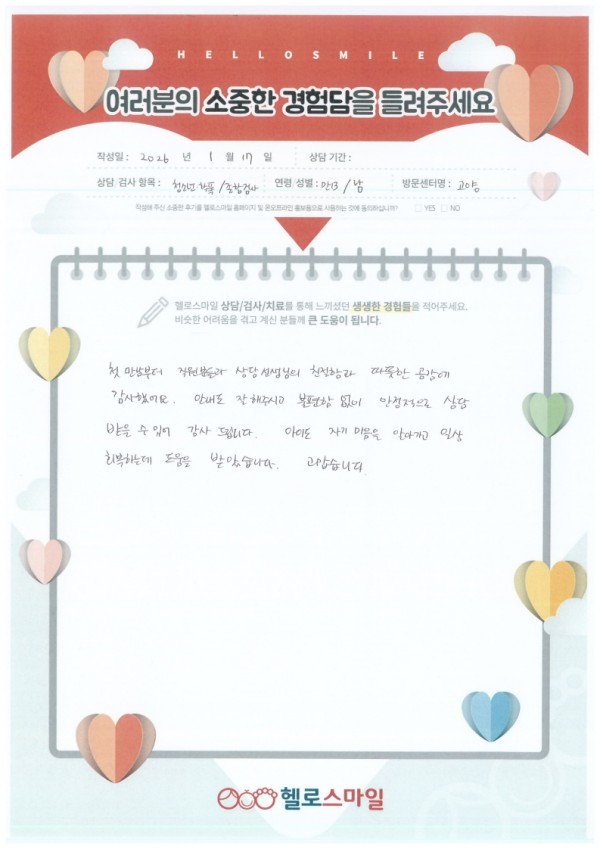 HELLOSMILE
여러분의 소중한 경험담을 들려주세요
작성일 : 2026 년 1 월 17 일 상담 기간 :
상담·검사 항목 : 청소년 학폭 / 종합검사 연령/성별 : 만13 / 남 방문센터명 : 고양
작성해 주신 소중한 후기를 헬로스마일 홈페이지 및 온오프라인 홍보용으로 사용하는 것에 동의하십니까? □ YES □ NO
헬로스마일 상담/검사/치료를 통해 느끼셨던 생생한 경험들을 적어주세요.
비슷한 어려움을 겪고 계신 분들께 큰 도움이 됩니다.
첫 만남부터 직원분들과 상담선생님의 친절함과 따뜻한 공감에
감사했어요. 안내도 잘 해주시고 불편함 없이 안정적으로 상담
받을 수 있어 감사 드립니다. 아이도 자기 마음을 알아가고 일상
회복하는데 도움을 받았습니다. 고맙습니다
헬로스마일